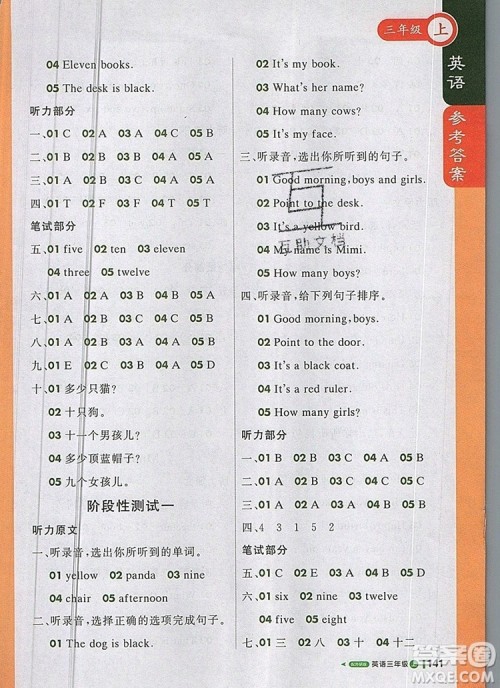 三年级 上
英语
参考答案
04 Eleven books.
05 The desk is black.
听力部分
一、01 C 02 A 03 A 04 C 05 B
二、01 B 02 A 03 C 04 A 05 B
三、01 B 02 A 03 C 04 A 05 B
四、01 F 02 T 03 F 04 T 05 T
笔试部分
五、01 five 02 ten 03 eleven
04 three 05 twelve
六、01 A 02 A 03 B 04 B 05 A
七、01 C 02 A 03 B 04 C 05 B
八、01 B 02 A 03 B 04 A 05 B
九、01 E 02 D 03 A 04 C 05 B
十、01 多少只猫?
02 十只狗。
03 十一个男孩儿?
04 多少顶蓝帽子?
05 九个女孩儿。
阶段性测试一
听力原文
一、听录音,选出你所听到的单词。
01 yellow 02 panda 03 nine
04 chair 05 afternoon
二、听录音,选择正确的选项完成句子。
01 The dog is black.
02 It's my book.
03 What's her name?
04 How many cows?
05 It's my face.
三、听录音,选出你所听到的句子。
01 Good morning, boys and girls.
02 Point to the desk.
03 It's a yellow bird.
04 My name is Mimi.
05 How many boys?
四、听录音,给下列句子排序。
01 Good morning, boys.
02 Point to the door.
03 It's a black coat.
04 It's a red ruler.
05 How many girls?
听力部分
一、01 B 02 B 03 C 04 A 05 B
二、01 A 02 B 03 C 04 A 05 B
三、01 A 02 B 03 A 04 B 05 B
四、4 3 1 5 2
笔试部分
五、01 C 02 E 03 B 04 A 05 D
六、01 six 02 ten 03 nine
04 five 05 eight
七、01 三 02 八 03 十 04 十二
英语三年级 上 141
互助文档
答案圈
MXQE.COM